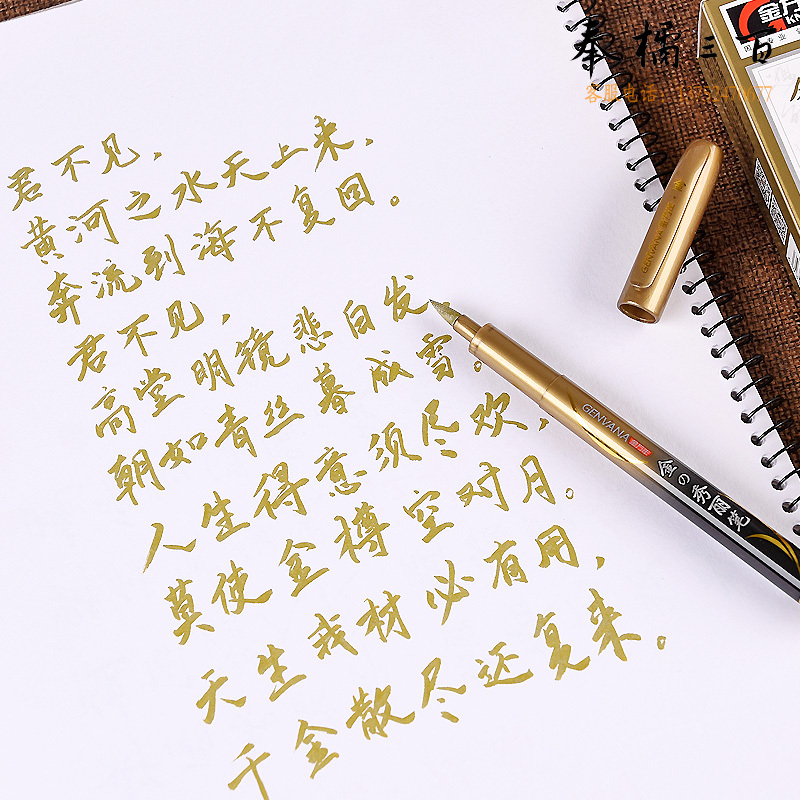 君不见，
黄河之水天上来，
奔流到海不复回。
君不见，
高堂明镜悲白发
朝如青丝暮成雪。
人生得意须尽欢，
莫使金樽空对月。
天生我材必有用，
千金散尽还复来。
奉橘三百
客服电话：
GENVANA
GENVANA
金の秀丽笔